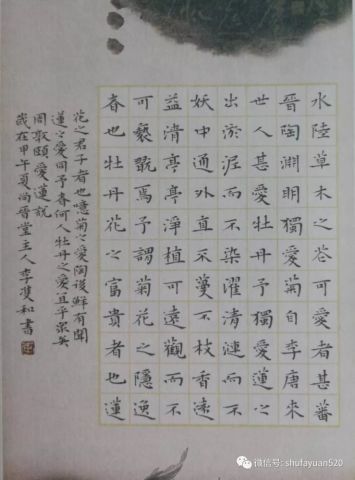 水陸草木之花可愛者甚蕃
晉陶淵明獨愛菊自李唐來
世人甚愛牡丹予獨愛蓮之
出淤泥而不染濯清漣而不
妖中通外直不蔓不枝香遠
益清亭亭淨植可遠觀而不
可褻翫焉予謂菊花之隱逸
者也牡丹花之富貴者也蓮
花之君子者也噫菊之愛陶後鮮有聞
蓮之愛同予者何人牡丹之愛宜乎眾矣
周敦頤愛蓮説
歲在甲午夏尚晉堂主人李雙和書
微信号: shufayuan520